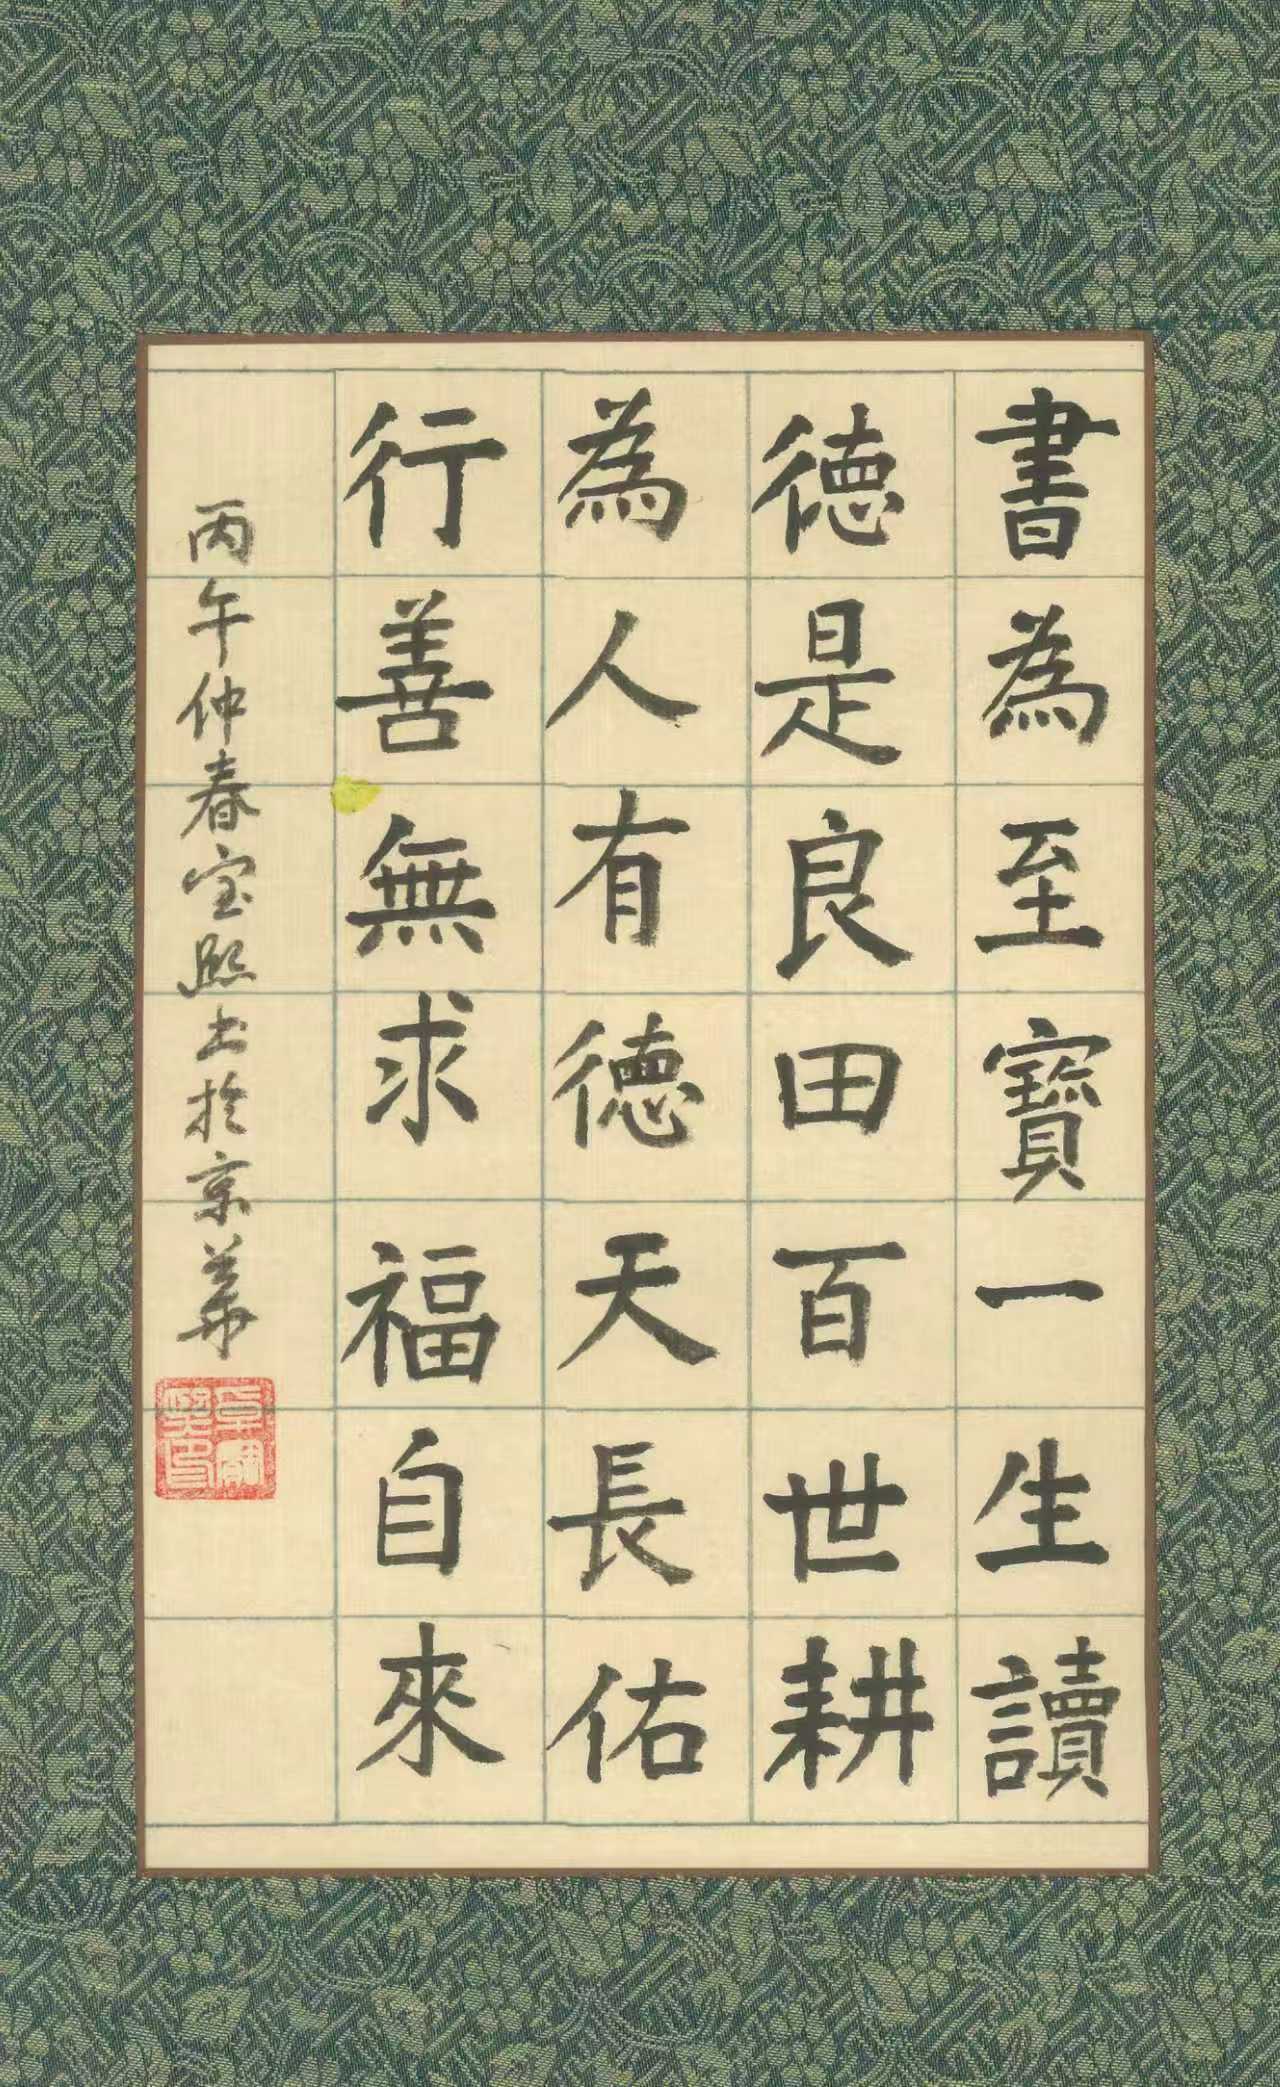 書為至寶一生讀
德是良田百世耕
為人有德天長佑
行善無求福自來
丙午仲春宝熙书於京華